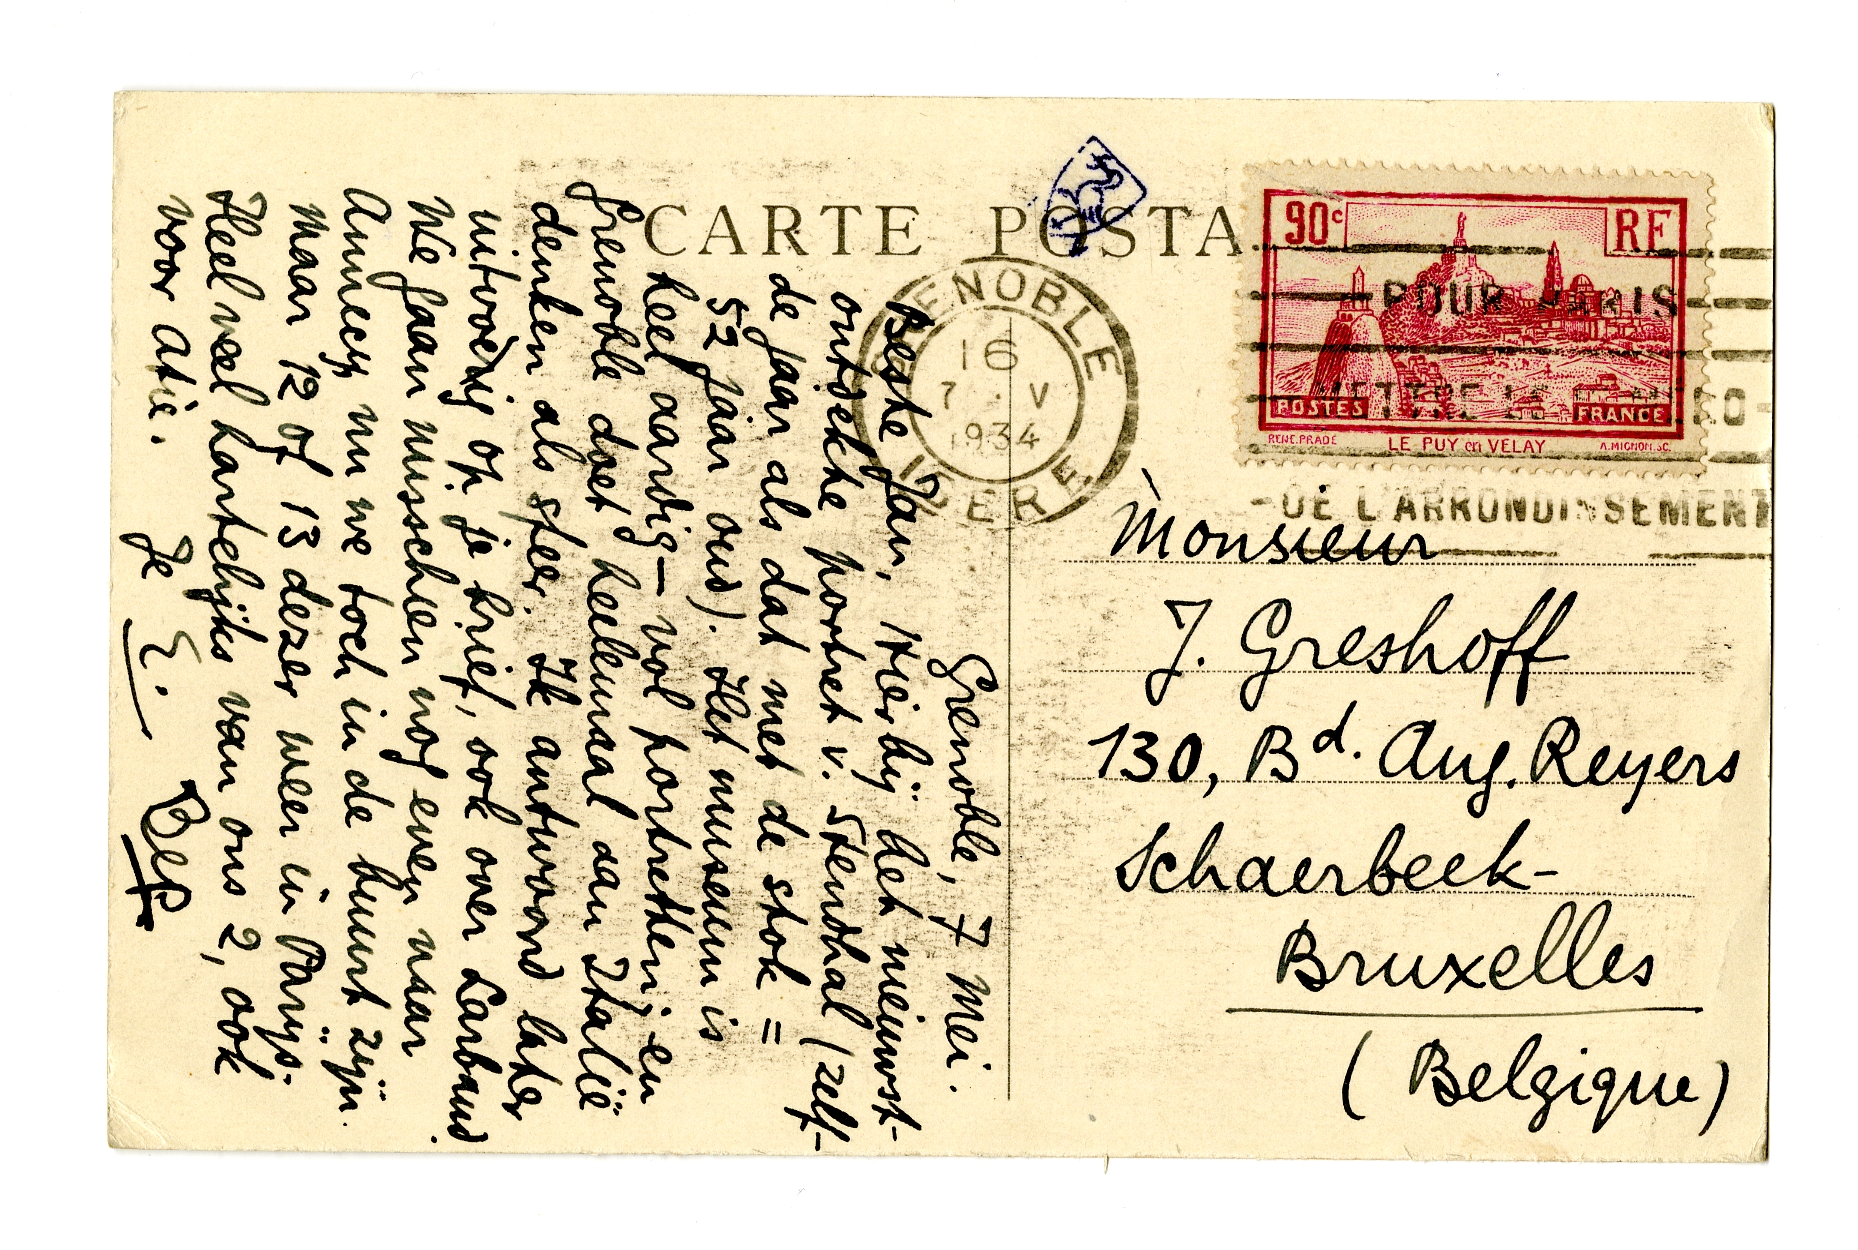 CARTE POSTA
90c
RF
POSTES
FRANCE
RENE.PRADE
LE PUY en VELAY
A.MIGNON.SC.
GRENOBLE
16
7 · V
1934
ISERE
POUR PARIS
METTRE LE
-DE L'ARRONDISSEMENT
Monsieur
J. Greshoff
130, Bd. Aug. Reyers
Schaerbeek-
Bruxelles
(Belgique)
Grenoble, 7 Mei.
Beste Jan, Hierbij het nieuwst-
ontdekte portret v. Stendhal (zelf-
de jaar als dat met de stok =
52 jaar oud). Het museum is
heel aardig — vol portretten; en
Grenoble doet heelemaal aan Italië
denken als sfeer. Ik antwoord later
uitvoerig op je brief, ook over Larbaud.
We gaan misschien nog even naar
Annecy nu we toch in de buurt zijn.
Maar 12 of 13 dezer weer in Parijs.
Heel veel hartelijks van ons 2, ook
voor Atie.
Je E.
Bep